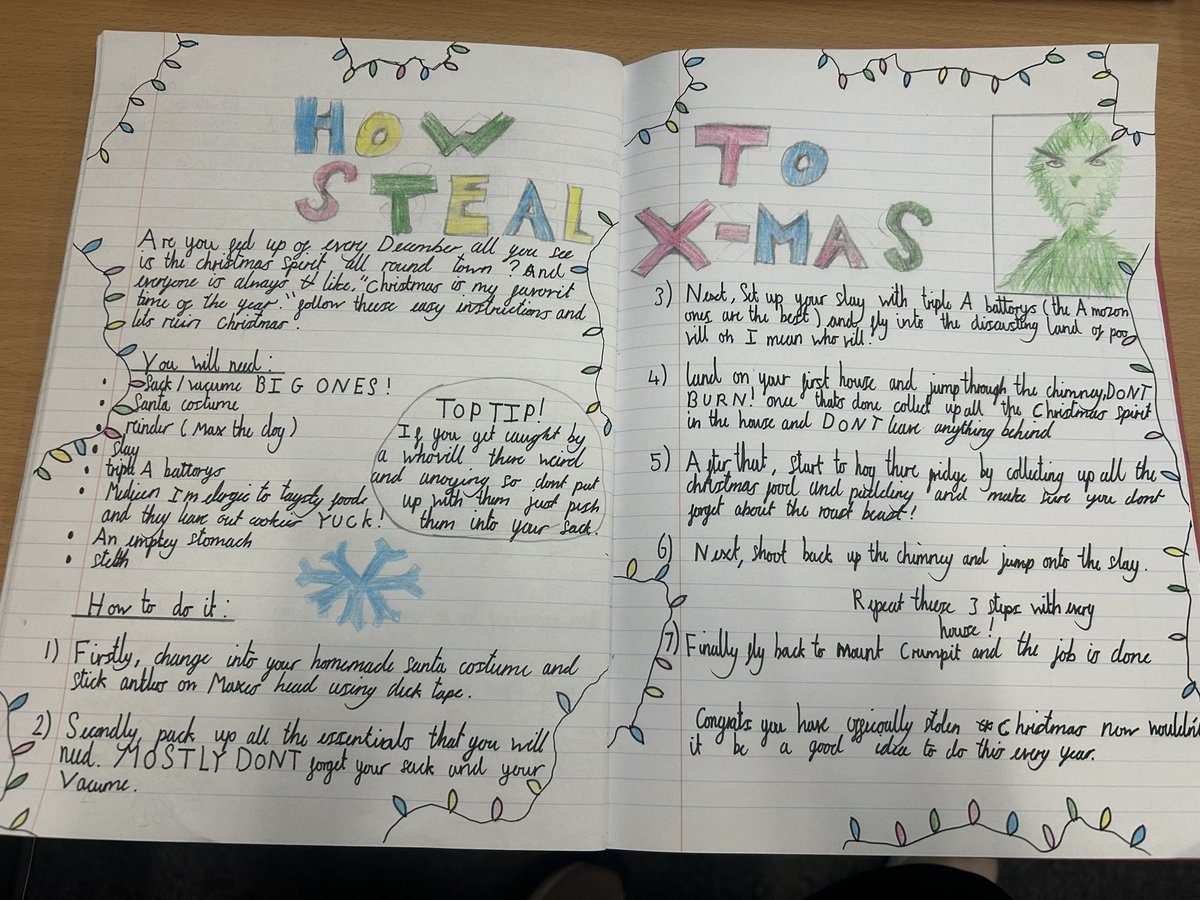 HOW TO
STEAL X-MAS
Are you fed up of every December all you see
is the christmas spirit all round town? And
everyone is always like, "Christmas is my favorit
time of the year." follow theese easy instructions and
lets ruin Christmas.
You will need:
• Sack/vacume BIG ONES!
• Santa costume
• rainder (Max the dog)
• slay
• triple A battorys
• Medicen I'm elergic to taysty foods
and they leave out cookies YUCK!
• An emptey stomach
• stelth
TOP TIP!
If you get caught by
a whovill there weird
and anoying so dont put
up with them just push
them into your sack.
How to do it:
1) Firstly, change into your homemade santa costume and
stick antlers on Maxes head using duck tape.
2) Secondly, pack up all the essentials that you will
need. MOSTLY DONT forget your sack and your
Vacume.
3) Next, Set up your slay with triple A battorys (the Amazon
ones are the best) and fly into the discusting land of poo
vill oh I mean who vill!
4) land on your first house and jump through the chimney, DONT
BURN! once thats done collect up all the Christmas spirit
in the house and DONT leave anything behind
5) After that, start to hog there fridge by collecting up all the
christmas food and pudding and make sure you dont
forget about the roast beast!
6) Next, shoot back up the chimney and jump onto the slay.
Repeat theese 3 steps with every
house!
7) Finally fly back to Mount Crumpit and the job is done
Congrats you have officoally stolen Christmas now wouldn't
it be a good idea to do this every year.